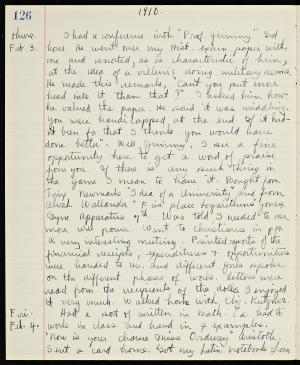 126
1910.
Thurs.
Feb. 3.
I had a conference with "Prof. Jimmy" 3rd
hour. He went over my Hist. exam paper with
me and snorted, as is characteristic of him,
at the idea of a villein's doing military service.
He made this remark, "Can't you put more
head into it than that?" I asked him how
he valued the paper. He said it was middling.
You were handicapped at the end. If it had-
n't been for that I think you would have
done better". Well Jimmy, I see a fine
opportunity here to get a word of praise
from you. If there is any such thing in
the game I mean to have it. Bought from
Newman's "Idea of a University" and from
five place logarithms
Gym. Apparatus Was told I needed to use
more will power. Went to Christians in p.m.
A very interesting meeting. Printed reports of the
financial receipts, expenditures & opportunities
were handed to us. And different girls spoke
on the different phases of work. Letters were
read from the recipients of the dolls I enjoyed
it very much. Walked home with
Fri.
Feb. 4.
Had a sort of written in Math. Ex. had to
works in class and hand in 4 examples.
"Now is your chance Miss Ordway" Aristotle.
Sent a card home. Got my Latin notebook from